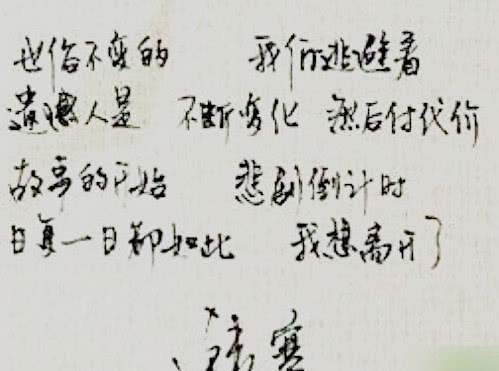 世俗不变的 我们逃避着
遗憾人是 不断变化 然后付代价
故事的开始 悲剧倒计时
日复一日都如此 我想离开了